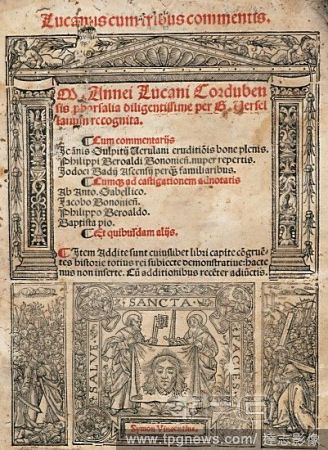 Lucanus cum tribus commentis.
M. Annei Lucani Corduben
sis pharsalia diligentissime per G. Versel
lanum recognita.
Cum commentarijs
Joãnis Sulpitij Verulani eruditiõis bone plenis.
Philippi Beroaldi Bononieñ. nuper repertis.
Jodoci Badij Ascensij perq̃ familiaribus.
Cumq̃ ad castigationem adnotatis
Ab Anto. Sabellico.
Jacobo Bononieñ.
Philippo Beroaldo.
Baptista pio.
Et quibusdam alijs.
Item Addite sunt cuiuslibet libri capite cõgruẽ
tes historie totius rei subiecte demonstratiue: hacte
nus non inserte. Cũ additionibus recẽter adiũctis.
SANCTA
SALVE
FACIES
Symon Vincentius.
www.tpgnews.com / 達志影像